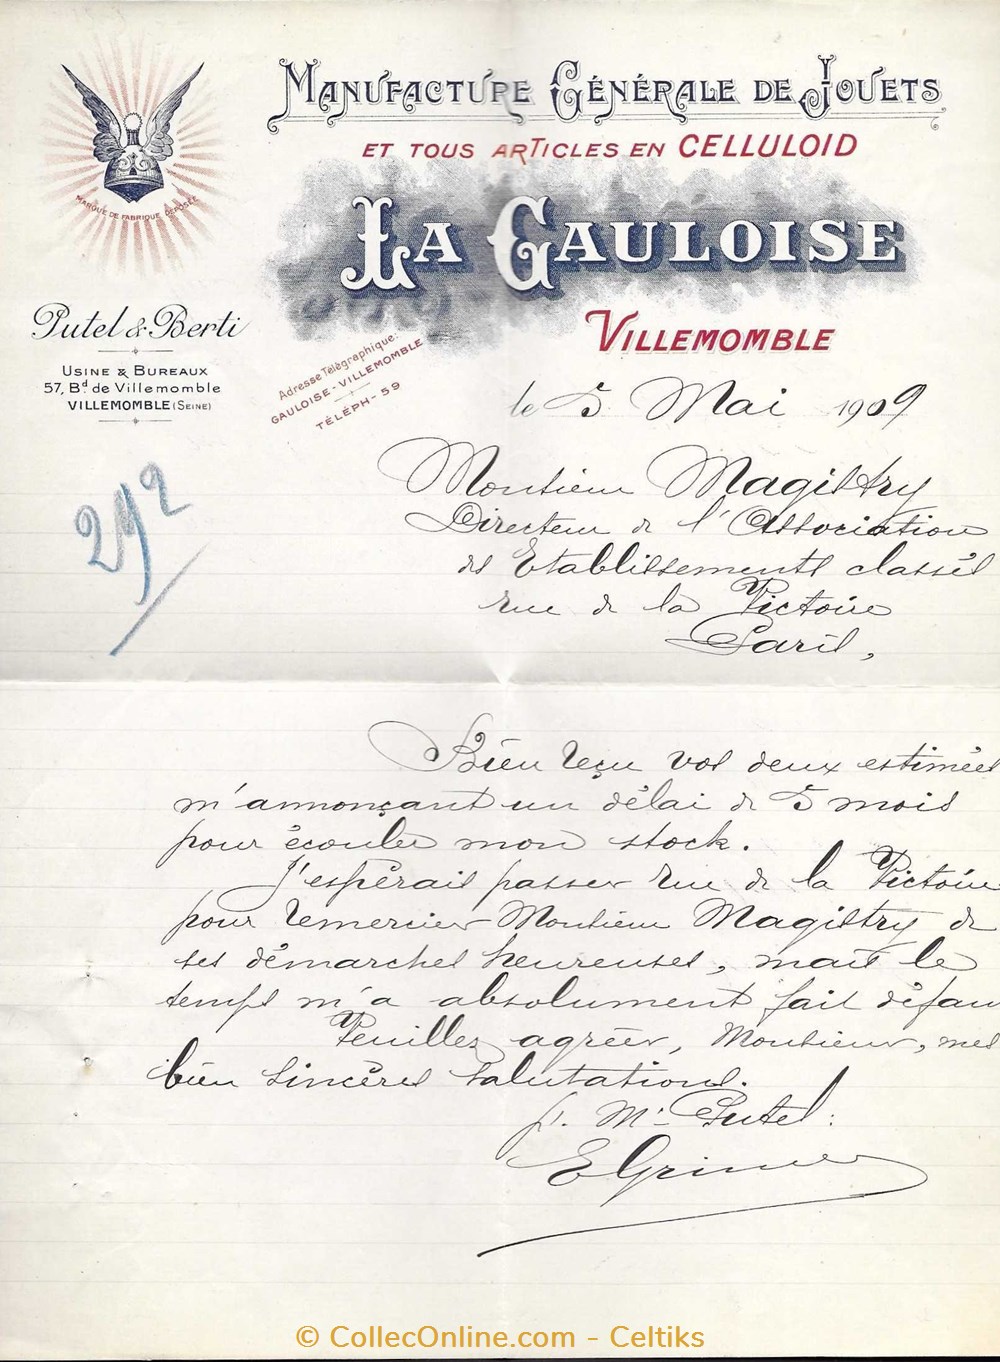 MANUFACTURE GÉNÉRALE DE JOUETS
ET TOUS ARTICLES EN CELLULOID
LA GAULOISE
VILLEMOMBLE
MARQUE DE FABRIQUE DÉPOSÉE
Putel & Berti
USINE & BUREAUX
57, Bd de Villemomble
VILLEMOMBLE (SEINE)
Adresse Télégraphique:
GAULOISE-VILLEMOMBLE
TÉLÉPH-59
le 5 Mai 1909
Monsieur Magistry
Directeur de l'Association
des Etablissements classés
rue de la Victoire
Paris,
Bien reçu vos deux estimées
m'annonçant un délai de 5 mois
pour écouler mon stock.
J'espérais passer rue de la Victoire
pour remercier Monsieur Magistry de
ses démarches heureuses, mais le
temps m'a absolument fait défau
Veuillez agréer, Monsieur, mes
bien sincères salutations.
p. Mr Putel:
© CollecOnline.com - Celtiks